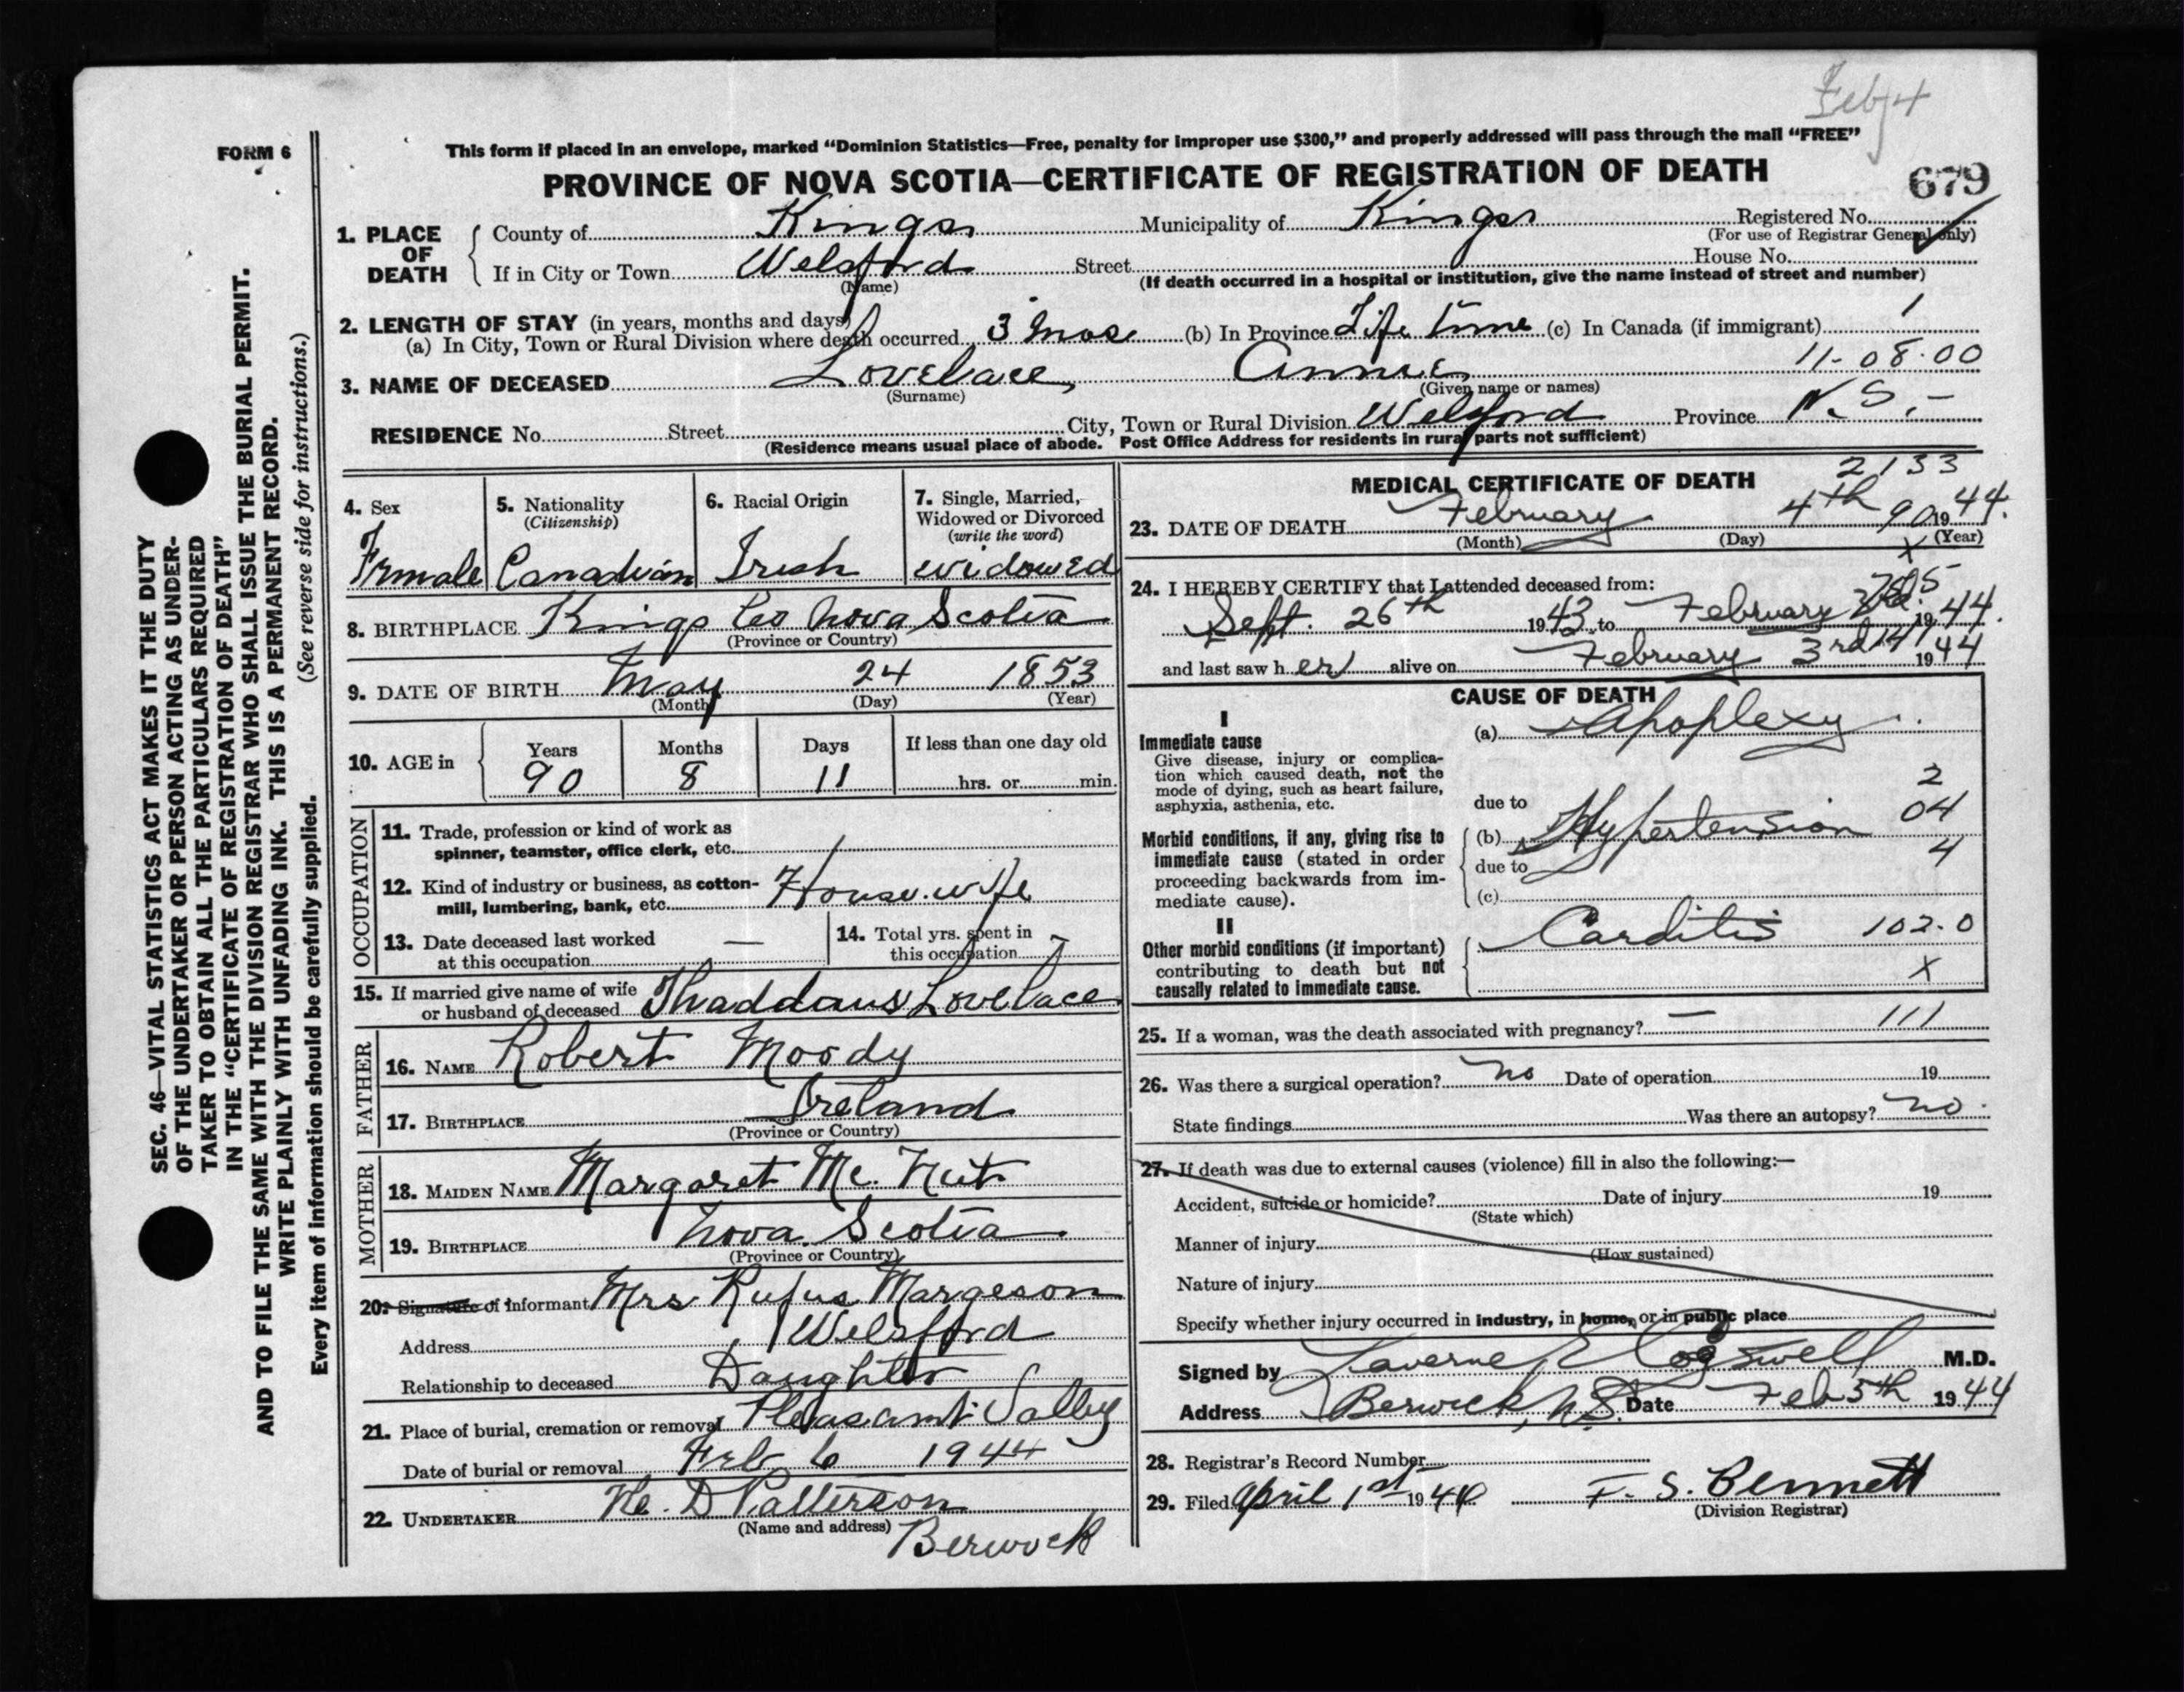 Feb 4
FORM 6
This form if placed in an envelope, marked “Dominion Statistics—Free, penalty for improper use $300,” and properly addressed will pass through the mail “FREE”
PROVINCE OF NOVA SCOTIA—CERTIFICATE OF REGISTRATION OF DEATH
679
1. PLACE OF DEATH
County of Kings Municipality of Kings Registered No.
(For use of Registrar General only)
If in City or Town Welsford Street House No.
(Name) (If death occurred in a hospital or institution, give the name instead of street and number)
2. LENGTH OF STAY (in years, months and days)
(a) In City, Town or Rural Division where death occurred 3 mos (b) In Province Life time (c) In Canada (if immigrant)
11-08-00
3. NAME OF DECEASED Lovelace, Annie
(Surname) (Given name or names)
RESIDENCE No. Street City, Town or Rural Division Welsford Province N.S.-
(Residence means usual place of abode. Post Office Address for residents in rural parts not sufficient)
4. Sex
Female
5. Nationality
(Citizenship)
Canadian
6. Racial Origin
Irish
7. Single, Married,
Widowed or Divorced
(write the word)
widowed
8. BIRTHPLACE Kings Co Nova Scotia
(Province or Country)
9. DATE OF BIRTH May 24 1853
(Month) (Day) (Year)
10. AGE in
Years Months Days If less than one day old
90 8 11 hrs. or min.
OCCUPATION
11. Trade, profession or kind of work as
spinner, teamster, office clerk, etc.
12. Kind of industry or business, as cotton-
mill, lumbering, bank, etc. Housewife
13. Date deceased last worked
at this occupation —
14. Total yrs. spent in
this occupation
15. If married give name of wife
or husband of deceased Thaddaus Lovelace
FATHER
16. NAME Robert Moody
17. BIRTHPLACE Ireland
(Province or Country)
MOTHER
18. MAIDEN NAME Margaret Mc. Nut
19. BIRTHPLACE Nova Scotia
(Province or Country)
20. Signature of informant Mrs Rufus Margeson
Address Welsford
Relationship to deceased Daughter
21. Place of burial, cremation or removal Pleasant Valley
Date of burial or removal Feb 6 1944
22. UNDERTAKER D Patterson
(Name and address) Berwick
MEDICAL CERTIFICATE OF DEATH
2133
23. DATE OF DEATH February 4th 90 1944.
(Month) (Day) (Year)
x
24. I HEREBY CERTIFY that I attended deceased from:
Sept. 26th 1943 to February 1944.
and last saw her alive on February 3rd 1944
CAUSE OF DEATH
I
Immediate cause
Give disease, injury or complica-
tion which caused death, not the
mode of dying, such as heart failure,
asphyxia, asthenia, etc.
(a) Apoplexy
2
due to
04
Morbid conditions, if any, giving rise to
immediate cause (stated in order
proceeding backwards from im-
mediate cause).
(b) Hypertension
4
due to
(c)
II
Other morbid conditions (if important)
contributing to death but not
causally related to immediate cause.
Carditis 102-0
x
25. If a woman, was the death associated with pregnancy? — 111
26. Was there a surgical operation? no Date of operation 19
State findings Was there an autopsy? no.
27. If death was due to external causes (violence) fill in also the following:—
Accident, suicide or homicide? Date of injury 19
(State which)
Manner of injury
(How sustained)
Nature of injury
Specify whether injury occurred in industry, in home, or in public place
Signed by Laverne E Cogswell M.D.
Address Berwick, N.S. Date Feb 5th 1944
28. Registrar's Record Number
29. Filed April 1st 1944 F. S. Bennett
(Division Registrar)
SEC. 46—VITAL STATISTICS ACT MAKES IT THE DUTY
OF THE UNDERTAKER OR PERSON ACTING AS UNDER-
TAKER TO OBTAIN ALL THE PARTICULARS REQUIRED
IN THE “CERTIFICATE OF REGISTRATION OF DEATH”
AND TO FILE THE SAME WITH THE DIVISION REGISTRAR WHO SHALL ISSUE THE BURIAL PERMIT.
WRITE PLAINLY WITH UNFADING INK. THIS IS A PERMANENT RECORD.
Every item of information should be carefully supplied. (See reverse side for instructions.)